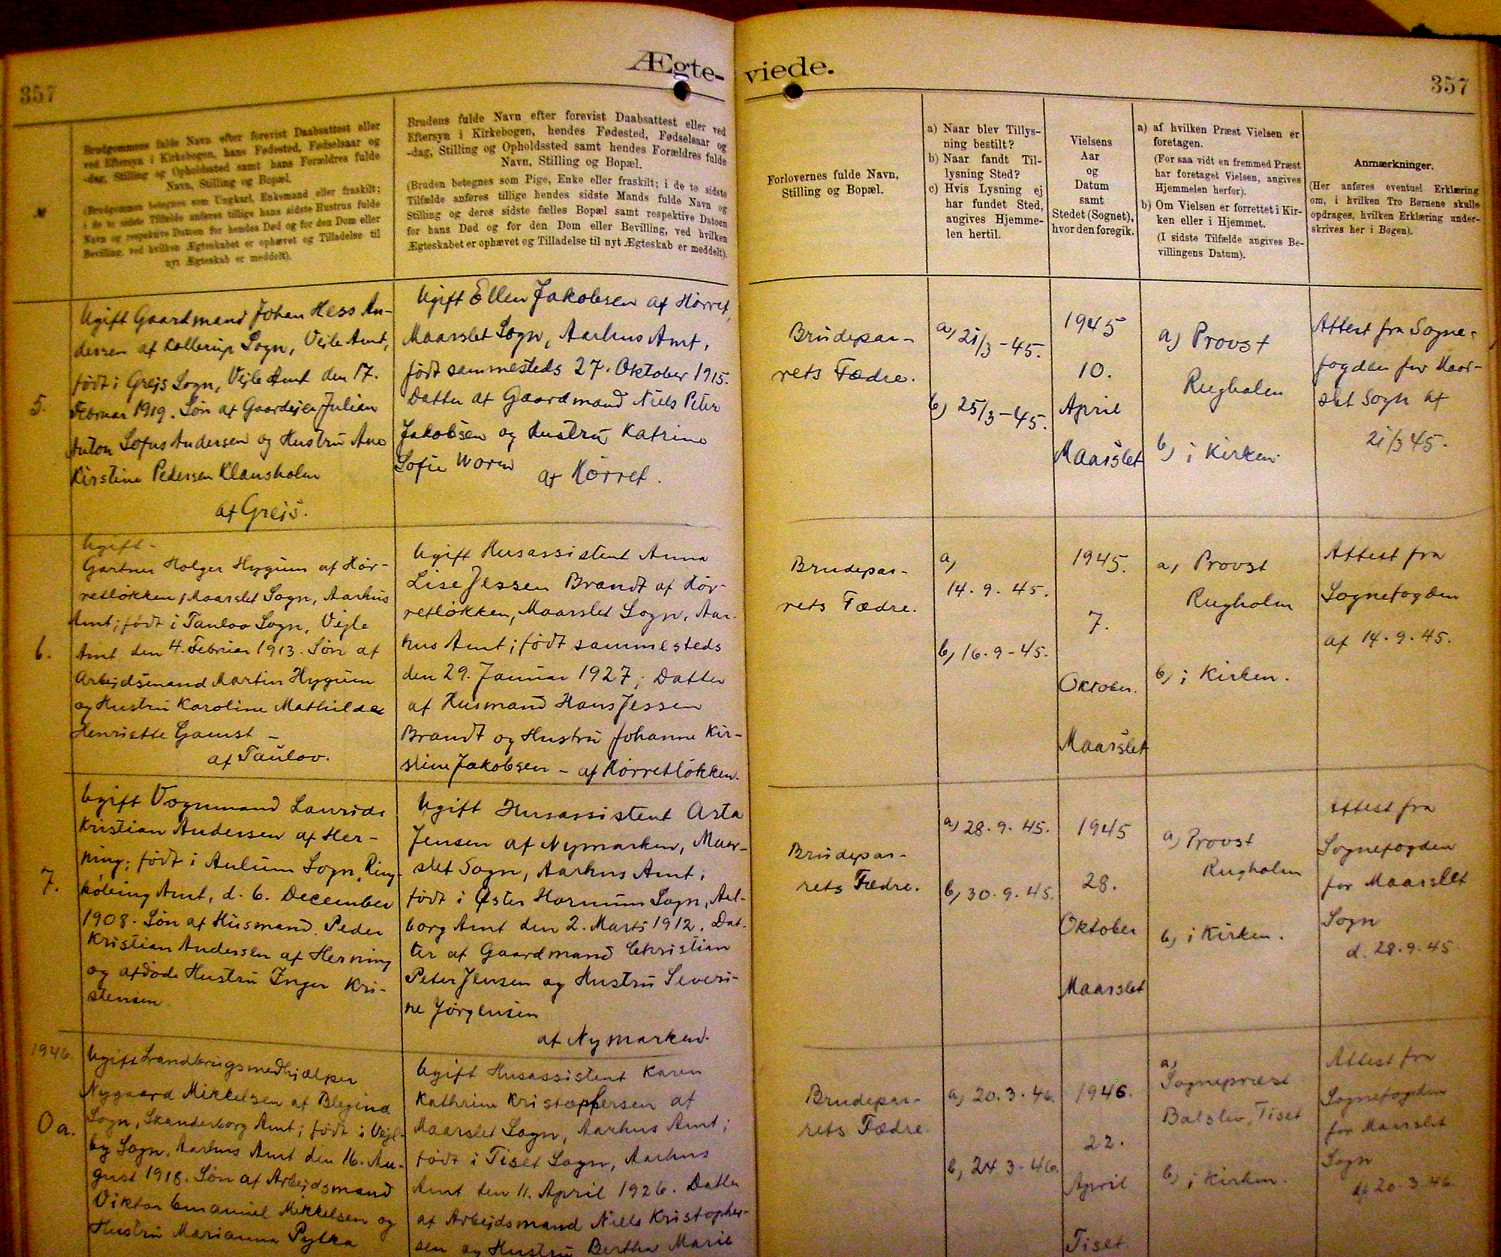 357
Ægte-
viede.
357
№
Brudgommens fulde Navn efter forevist Daabsattest eller
ved Eftersyn i Kirkebogen, hans Fødested, Fødselsaar og
-dag, Stilling og Opholdssted samt hans Forældres fulde
Navn, Stilling og Bopæl.
(Brudgommen betegnes som Ungkarl, Enkemand eller fraskilt;
i de to sidste Tilfælde anføres tillige hans sidste Hustrus fulde
Navn og respektive Datoen for hendes Død og for den Dom eller
Bevilling, ved hvilken Ægteskabet er ophævet og Tilladelse til
nyt Ægteskab er meddelt).
Brudens fulde Navn efter forevist Daabsattest eller ved
Eftersyn i Kirkebogen, hendes Fødested, Fødselsaar og
-dag, Stilling og Opholdssted samt hendes Forældres fulde
Navn, Stilling og Bopæl.
(Bruden betegnes som Pige, Enke eller fraskilt; i de to sidste
Tilfælde anføres tillige hendes sidste Mands fulde Navn og
Stilling og deres sidste fælles Bopæl samt respektive Datoen
for hans Død og for den Dom eller Bevilling, ved hvilken
Ægteskabet er ophævet og Tilladelse til nyt Ægteskab er meddelt).
Forlovernes fulde Navn,
Stilling og Bopæl.
a) Naar blev Tillys-
ning bestilt?
b) Naar fandt Til-
lysning Sted?
c) Hvis Lysning ej
har fundet Sted,
angives Hjemme-
len hertil.
Vielsens
Aar
og
Datum
samt
Stedet (Sognet),
hvor den foregik.
a) af hvilken Præst Vielsen er
foretagen.
(For saa vidt en fremmed Præst
har foretaget Vielsen, angives
Hjemmelen herfor).
b) Om Vielsen er forrettet i Kir-
ken eller i Hjemmet.
(I sidste Tilfælde angives Be-
villingens Datum).
Anmærkninger.
(Her anføres eventuel Erklæring
om, i hvilken Tro Børnene skulle
opdrages, hvilken Erklæring under-
skrives her i Bogen).
5.
Ugift Gaardmand Johan Hess An-
dersen af Kollerup Sogn, Vejle Amt,
født i Grejs Sogn, Vejle Amt den 17.
Februar 1919. Søn af Gaardejer Julian
Anton Sofus Andersen og Hustru Ane
Kirstine Pedersen Klausholm
af Grejs.
Ugift Ellen Jakobsen af Hørret,
Maarslet Sogn, Aarhus Amt,
født sammesteds 27. Oktober 1915.
Datter af Gaardmand Niels Peter
Jakobsen og Hustru Katrine
Sofie Worm
af Hørret.
Brudepar-
rets Fædre.
a) 21/3-45.
b) 25/3-45.
1945
10.
April
Maarslet
a) Provst
Rugholm
b) i Kirken.
Attest fra Sogne-
fogden for Maar-
slet Sogn af
21/3 45.
6.
Ugift
Gartner Holger Hygum af Hør-
retløkken, Maarslet Sogn, Aarhus
Amt; født i Taulov Sogn, Vejle
Amt den 4. Februar 1913. Søn af
Arbejdsmand Martin Hygum
og Hustru Karoline Mathilde
Henriette Gamst –
af Taulov.
Ugift Husassistent Anna
Lise Jessen Brandt af Hør-
retløkken, Maarslet Sogn, Aar-
hus Amt; født sammesteds
den 29. Januar 1927; Datter
af Husmand Hans Jessen
Brandt og Hustru Johanne Kir-
stine Jakobsen – af Hørretløkken.
Brudepar-
rets Fædre.
a)
14.9.45.
b) 16.9-45.
1945.
7.
Oktober.
Maarslet
a) Provst
Rugholm
b) i Kirken.
Attest fra
Sognefogden
af 14.9.45.
7.
Ugift Vognmand Laurids
Kristian Andersen af Her-
ning; født i Aulum Sogn, Ring-
købing Amt, d. 6. December
1908. Søn af Husmand Peder
Kristian Andersen af Herning
og afdøde Hustru Inger Kri-
stensen
Ugift Husassistent Asta
Jensen af Nymarken, Maar-
slet Sogn, Aarhus Amt;
født i Øster Hornum Sogn, Aal-
borg Amt den 2. Marts 1912. Dat-
ter af Gaardmand Christian
Peter Jensen og Hustru Severi-
ne Jørgensen
af Nymarken.
Brudepar-
rets Fædre.
a) 28.9.45.
b) 30.9.45.
1945
28.
Oktober
Maarslet
a) Provst
Rugholm
b) i Kirken.
Attest fra
Sognefogden
for Maarslet
Sogn
d. 28.9.45
1946.
0a.
Ugift Landbrugsmedhjælper
Nygaard Mikkelsen af Blegind
Sogn, Skanderborg Amt; født i Vejl-
by Sogn, Aarhus Amt den 16. Au-
gust 1918. Søn af Arbejdsmand
Viktor Emanuel Mikkelsen og
Hustru Marianna Pytka
Ugift Husassistent Karen
Kathrine Kristoffersen af
Maarslet Sogn, Aarhus Amt;
født i Tiset Sogn, Aarhus
Amt den 11. April 1926. Datter
af Arbejdsmand Niels Kristopher-
sen og Hustru Bertha Marie
Brudepar-
rets Fædre.
a) 20.3.46.
b) 24.3-46.
1946.
22.
April
Tiset.
a)
Sognepræst
Balslev, Tiset
b) i Kirken.
Attest fra
Sognefogden
for Maarslet
Sogn
af 20.3.46